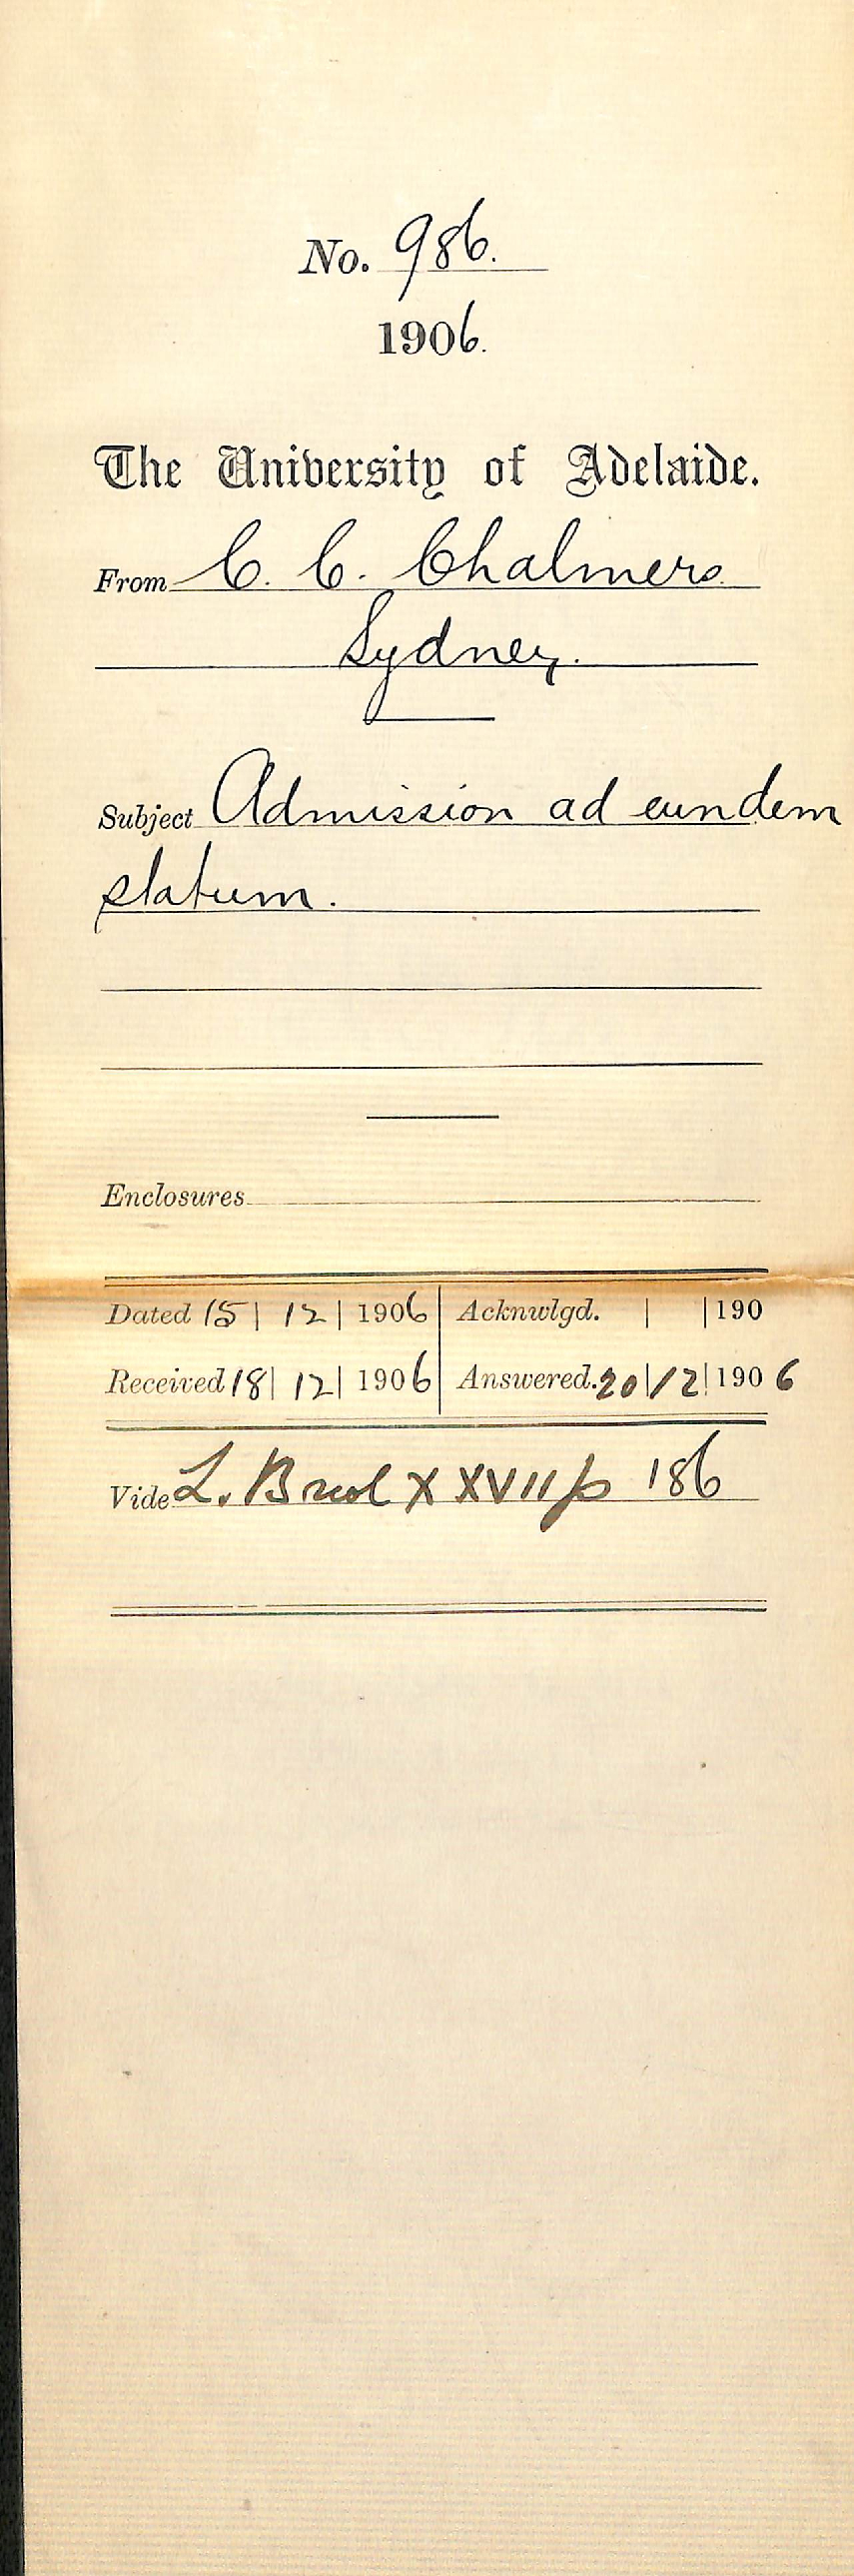 No. 986.
1906.
The University of Adelaide.
From C. C. Chalmers
Sydney.
Subject Admission ad eundem
statum.
Enclosures
Dated 15 | 12 | 1906 Acknwlgd. | | 190
Received 18 | 12 | 1906 Answered. 20 | 12 | 1906
Vide L. XXVII p 186